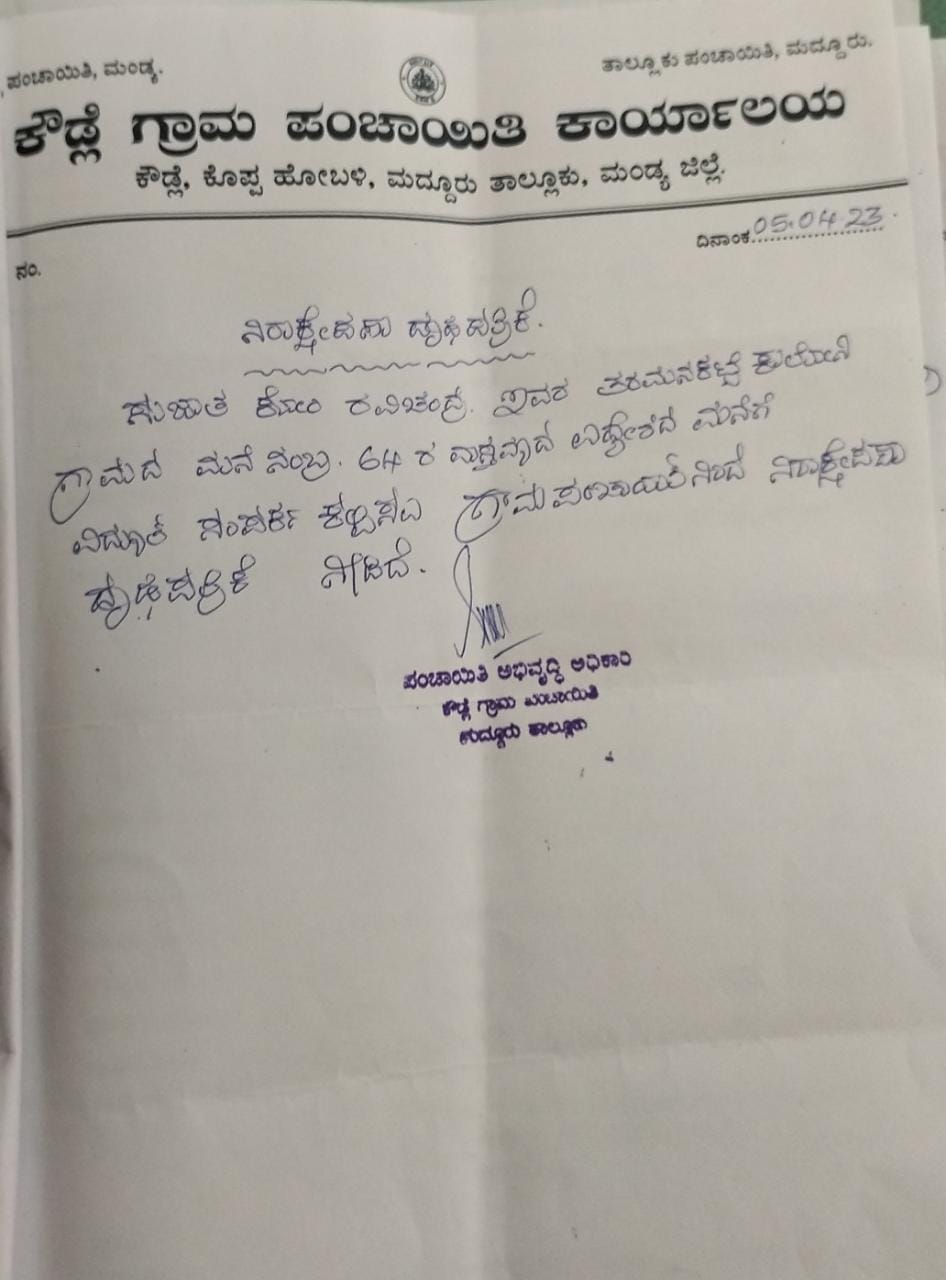 ಪಂಚಾಯಿತಿ, ಮಂಡ್ಯ.
ತಾಲ್ಲೂಕು ಪಂಚಾಯಿತಿ, ಮದ್ದೂರು.
ಕೌಡ್ಲೆ ಗ್ರಾಮ ಪಂಚಾಯಿತಿ ಕಾರ್ಯಾಲಯ
ಕೌಡ್ಲೆ, ಕೊಪ್ಪ ಹೋಬಳಿ, ಮದ್ದೂರು ತಾಲ್ಲೂಕು, ಮಂಡ್ಯ ಜಿಲ್ಲೆ.
ದಿನಾಂಕ 05.04.23.
ನಂ.
ನಿರಾಕ್ಷೇಪಣಾ ದೃಢಪತ್ರಿಕೆ.
ಸುಜಾತ ಕೋಂ ರವಿಚಂದ್ರ. ಇವರ ಕಾಲೋನಿ
ಗ್ರಾಮದ ಮನೆ ನಂಬ್ರ. 64 ರ ಮನೆಗೆ
ವಿದ್ಯುತ್ ಸಂಪರ್ಕ ಕಲ್ಪಿಸಲು ಗ್ರಾಮ ಪಂಚಾಯಿತಿಯಿಂದ ನಿರಾಕ್ಷೇಪಣಾ
ದೃಢಪತ್ರಿಕೆ ನೀಡಿದೆ.
ಪಂಚಾಯಿತಿ ಅಭಿವೃದ್ಧಿ ಅಧಿಕಾರಿ
ಕೌಡ್ಲೆ ಗ್ರಾಮ ಪಂಚಾಯಿತಿ
ಮದ್ದೂರು ತಾಲ್ಲೂಕು